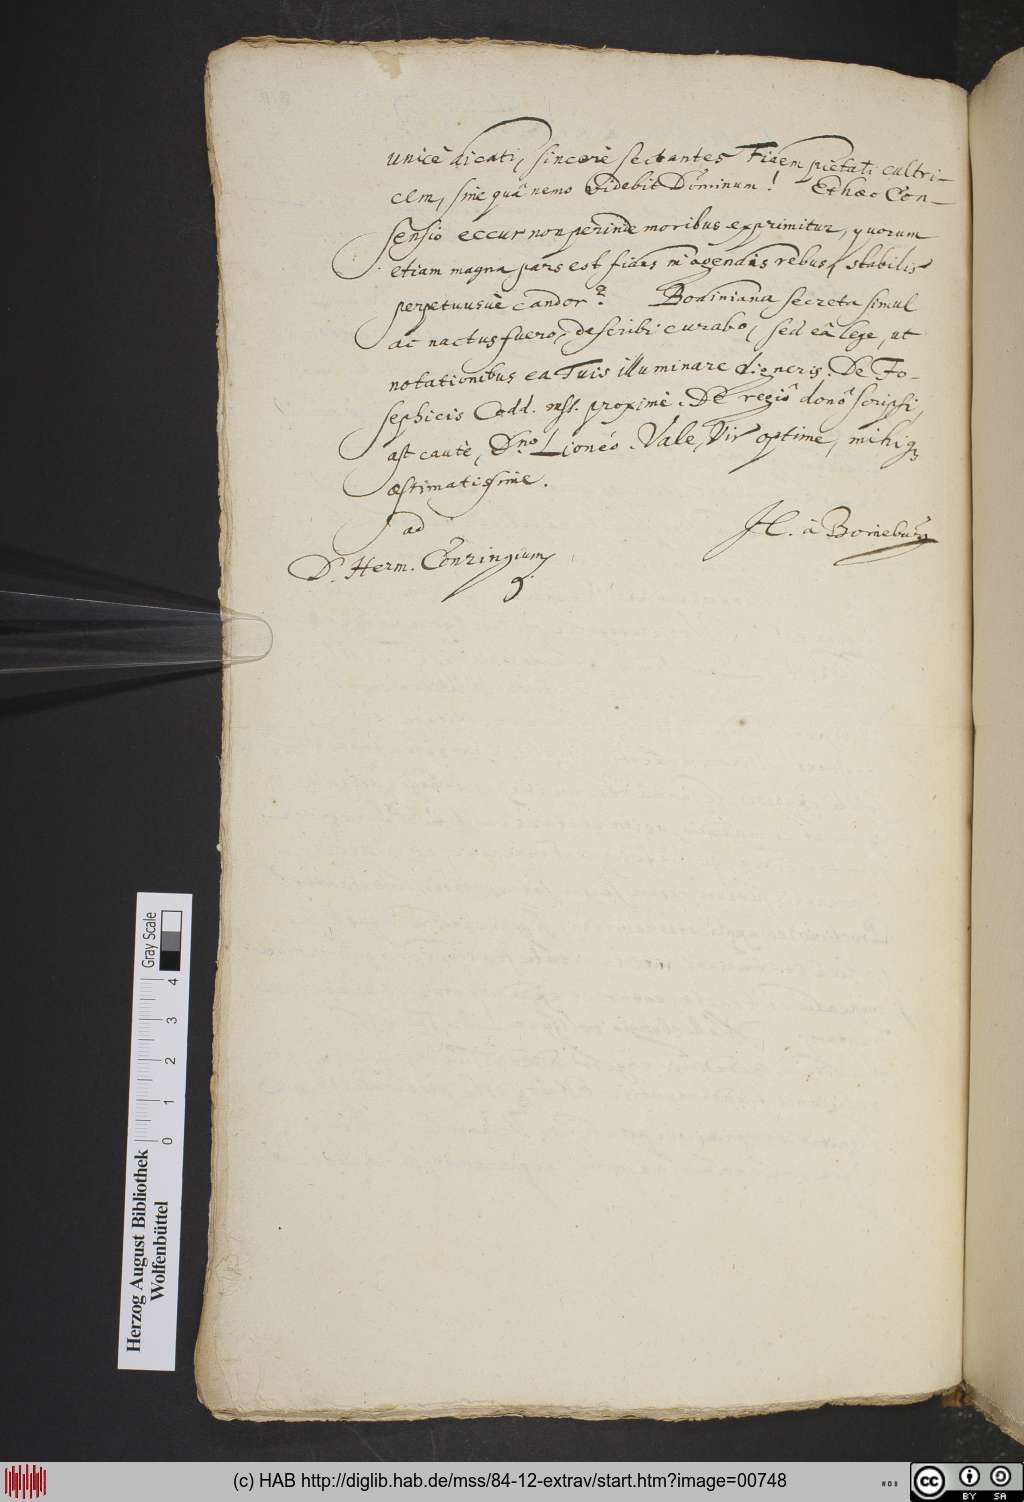 unicè dicati, sincerè sectantes Fidem pietati cultri-
cem, sine quâ nemo Videbit Dominum! Et hæc Con-
sensio eccur non perinde moribus exprimitur, quorum
etiam magna pars est fides in agendis rebus, stabilis
perpetuusvè candor? Bodiniana secreta simul
ac nactus fuero, describi curabo, sed eâ lege, ut
notationibus ea Tuis illuminare digneris. De Jo-
sephicis Codd. mss. proximè. De regiô donô scripsi,
ast cautè, Dno Lioneo. Vale, Vir optime, mihiq3
æstimatissime.
ad
JC. à Boineburg
D. Herm. Conringium
Gray Scale
0 1 2 3 4
Herzog August Bibliothek
Wolfenbüttel
(c) HAB http://diglib.hab.de/mss/84-12-extrav/start.htm?image=00748
WDB
cc BY SA